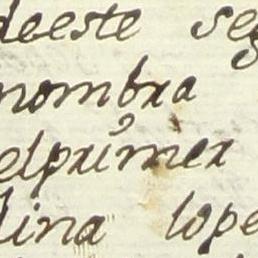 deeste seg
nombra
elprimer
lina lope